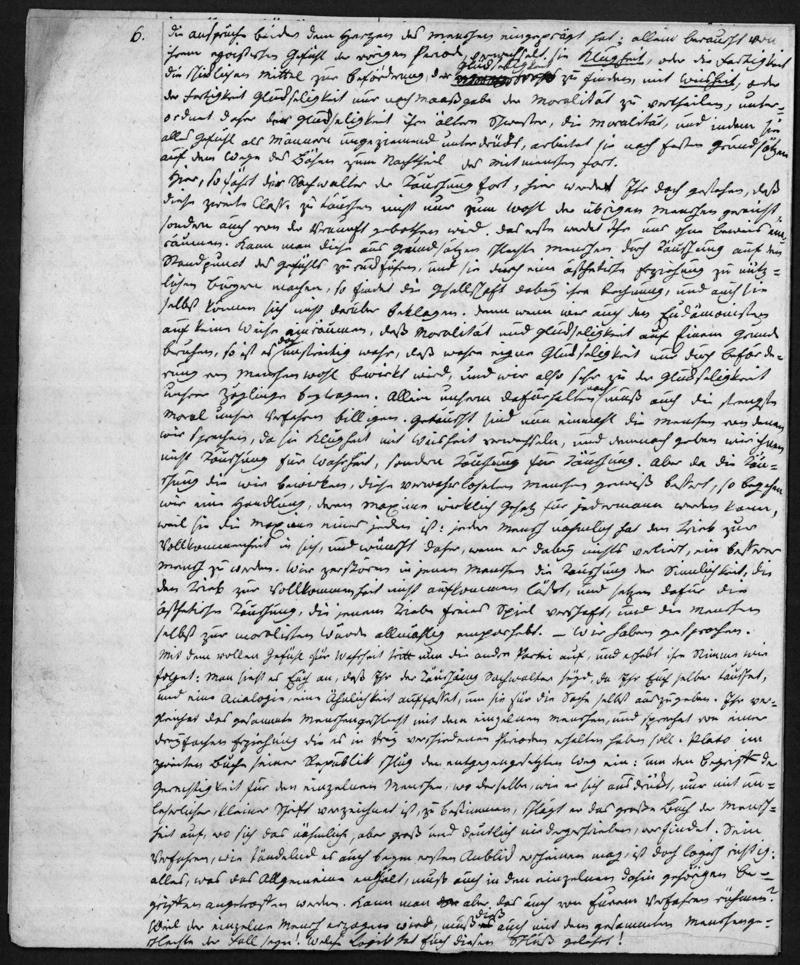 6.
die Ansprüche beider dem Herzen des Menschen eingeprägt hat; allein berauscht von
ihrem egoistischen Gefühl der vorigen Periode, verwechselt sie Klugheit, oder die Fertigkeit
die schicklichen Mittel zur Beförderung der Glückseligkeit zu finden, mit Weisheit, oder
der Fertigkeit Glückseligkeit nur nach Maasgabe der Moralität zu vertheilen, unter-
ordnet daher der Glückseligkeit ihre ältere Schwester, die Moralität, und indem sie
alles Gefühl als Männern ungeziemend unterdrückt, arbeitet sie nach festen Grundsätzen
auf dem Wege des Bösen zum Nachtheil der Mitmenschen fort.
Hier, so fährt der Sachwalter der Täuschung fort, hier werdet Ihr doch gestehen, daß
diese zweite Classe zu täuschen nicht nur zum Wohl der übrigen Menschen gereicht,
sondern auch von der Vernunft gebothen wird; das erste werdet Ihr uns ohne Beweis ein-
räumen. Kann man diese aus Grundsätzen schlechte Menschen durch Täuschung auf den
Standpunct des Gefühls zurückführen, und sie durch eine ästhetische Erziehung zu nütz-
lichen Bürgern machen, so findet die Gesellschaft dabey ihre Rechnung, und auch sie
selbst können sich nicht darüber beklagen. Denn wenn wir auch den Eudämonisten
auf keine Weise einräumen, daß Moralität und Glückseligkeit auf Einem Grund
beruhen, so ist es doch unstreitig wahr, daß wahre eigne Glückseligkeit nur durch Beförde-
rung von Menschenwohl bewirkt wird, und wir also sehr zu der Glückseligkeit
unsrer Zöglinge beytragen. Allein unserm Dafürhalten nach muß auch die strengste
Moral unser Verfahren billigen. Getäuscht sind nun einmahl die Menschen von denen
wir sprechen, da sie Klugheit mit Weisheit verwechseln, und demnach geben wir ihnen
nicht Täuschung für Wahrheit, sondern Täuschung für Täuschung. Aber da die Täu-
schung die wir bewirken, diese verwahrlosten Menschen gewiß bessert, so begehen
wir eine Handlung, deren Maxime wirklich Gesetz für jedermann werden kann,
weil sie die Maxime eines jeden ist: jeder Mensch nähmlich hat den Trieb zur
Vollkommenheit in sich, und wünscht daher, wenn er dabey nichts verliert, ein besserer
Mensch zu werden. Wir zerstören in jenen Menschen die Täuschung der Sinnlichkeit, die
den Trieb zur Vollkommenheit nicht aufkommen läßt, und setzen dafür die
ästhetische Täuschung, die jenem Triebe freies Spiel verschaft, und die Menschen
selbst zur moralischen Würde allmählig emporhebt. – Wir haben gesprochen.
Mit dem vollen Gefühl für Wahrheit tritt nun die andre Partei auf, und erhebt ihre Stimme wie
folget: Man sieht es Euch an, daß Ihr der Täuschung Sachwalter seyd, da Ihr Euch selber täuschet,
und eine Analogie, eine Ähnlichkeit auffasset, um sie für die Sache selbst auszugeben. Ihr ver-
gleichet das gesammte Menschengeschlecht mit dem einzelnen Menschen, und sprechet von einer
dreyfachen Erziehung die es in drey verschiedenen Perioden erhalten haben soll. Plato im
zweiten Buche seiner Republik schlug den entgegengesetzten Weg ein: um den Begriff der
Gerechtigkeit für den einzelnen Menschen, wo derselbe, wie er sich ausdrückt, nur mit un-
leserlicher, kleiner Schrift verzeichnet ist, zu bestimmen, schlägt er das große Buch der Mensch-
heit auf, wo sich das nähmliche, aber groß und deutlich niedergeschrieben, vorfindet. Sein
Verfahren, wie tändelnd es auch beym ersten Anblick erscheinen mag, ist doch logisch richtig:
alles, was das Allgemeine enthält, muß auch in den einzelnen dahin gehörigen Be-
griffen angetroffen werden. Kann man aber das auch von Eurem Verfahren rühmen?
Weil der einzelne Mensch erzogen wird, muß dieß auch mit dem gesammten Menschenge-
schlechte der Fall seyn! Welche Logik hat Euch diesen Schluß gelehrt!